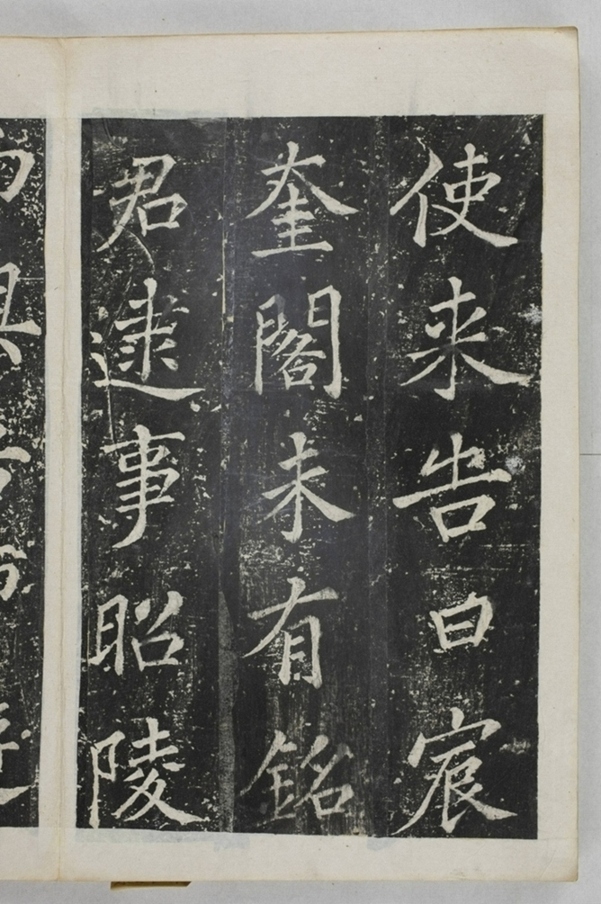 使来告曰宸
奎閣未有銘
君逮事昭陵